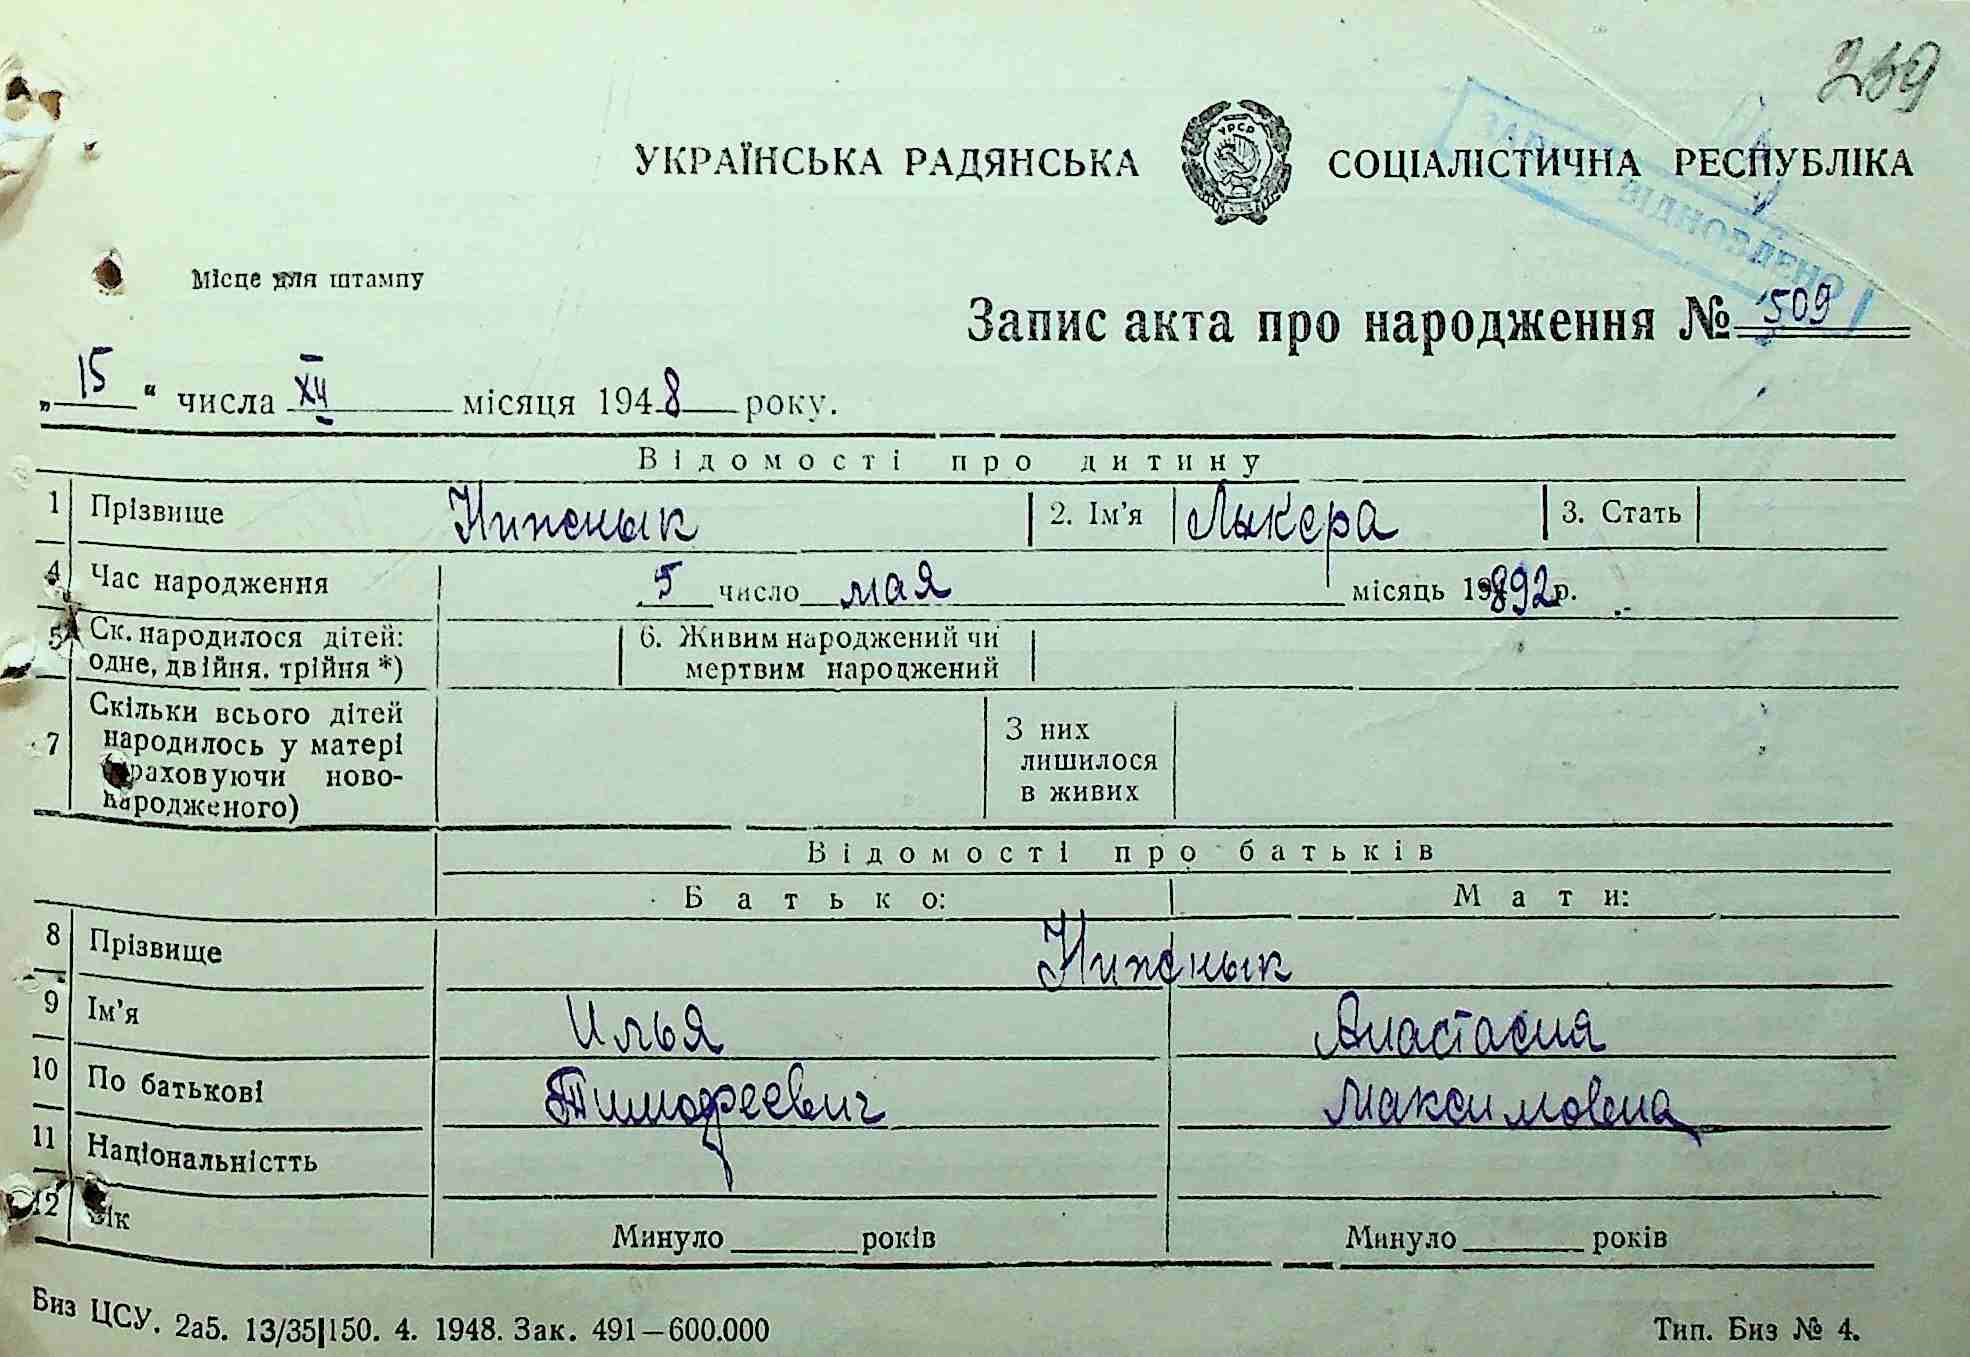 269
УКРАЇНСЬКА РАДЯНСЬКА СОЦІАЛІСТИЧНА РЕСПУБЛІКА
УРСР
ЗАПИС ВІДНОВЛЕНО
Місце для штампу
Запис акта про народження № 509
„15“ числа XII місяця 1948 року.
Відомості про дитину
1 Прізвище Нипснык 2. Ім'я Лыкера 3. Стать
4 Час народження 5 число мая місяць 1892 р.
5 Ск. народилося дітей: 6. Живим народжений чи
одне, двійня, трійня *) мертвим народжений
7 Скільки всього дітей З них
народилось у матері лишилося
враховуючи ново- в живих
народженого)
Відомості про батьків
Батько: Мати:
8 Прізвище Нипснык
9 Ім'я Илья Анастасия
10 По батькові Тимофеевич Максимовна
11 Національністть
12 Вік Минуло ______ років Минуло ______ років
Биз ЦСУ. 2а5. 13/35|150. 4. 1948. Зак. 491—600.000 Тип. Биз № 4.